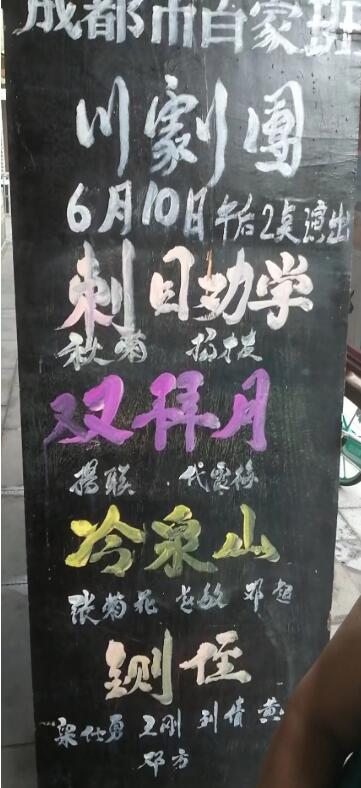 成都市百家班
川劇團
6月10日午后2点演出
刺目劝学
秋菊 杨枝
双拜月
楊联 代震
冷泉山
张菊花 赵敏 邓超
铡侄
梁仕勇 王刚 刘倩 黄
邓方